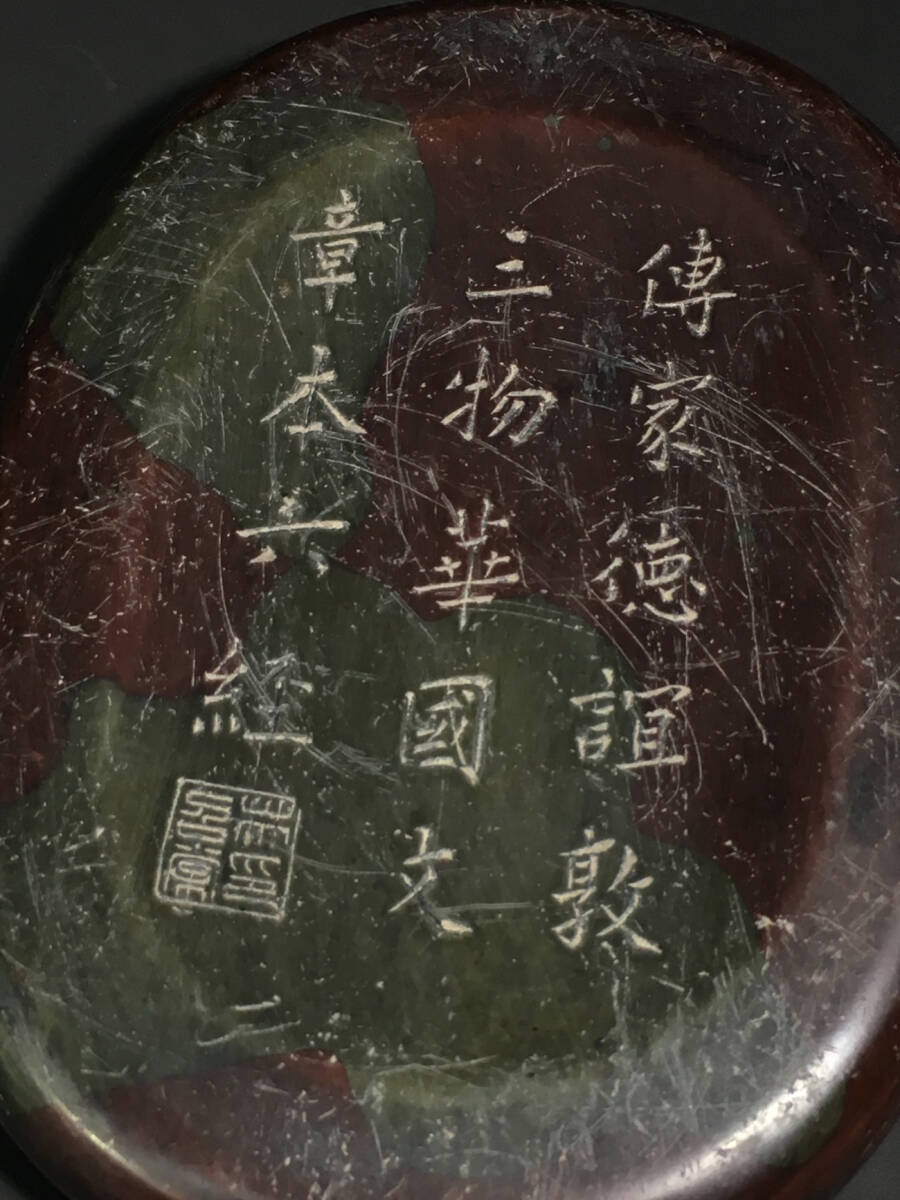 傳家德誼敦
三物華國文
章本六經